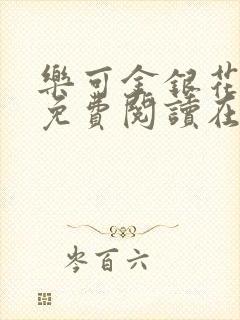 樂可金銀花
免費閱讀在
岑百六